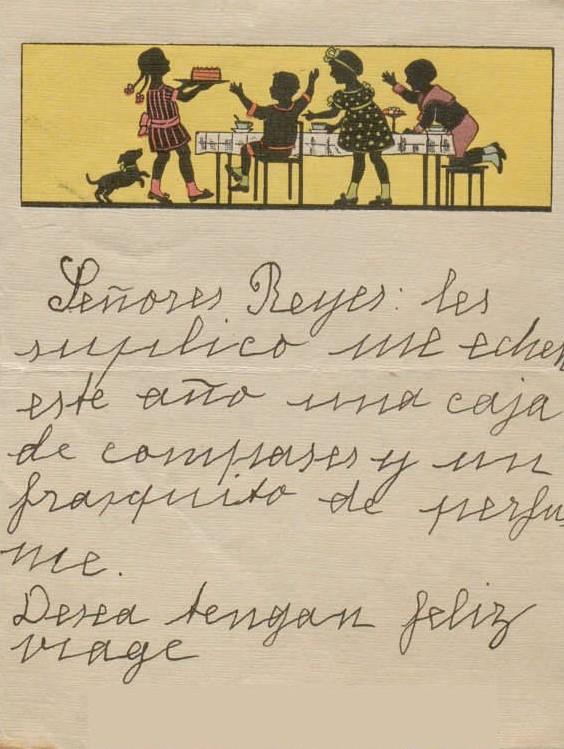 Señores Reyes: les
suplico me echen
este año una caja
de compases y un
frasquito de perfu
me.
Desea tengan feliz
viage